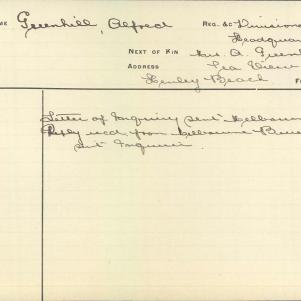 ME Greenhill, Alfred REG. &C Divisiona
Headquar
NEXT OF KIN Mrs A. Green
ADDRESS Sea View
Henley Beach
Letter of Inquiry sent Melbourne
Reply recd. from Melbourne Burea
sent Inquirer.